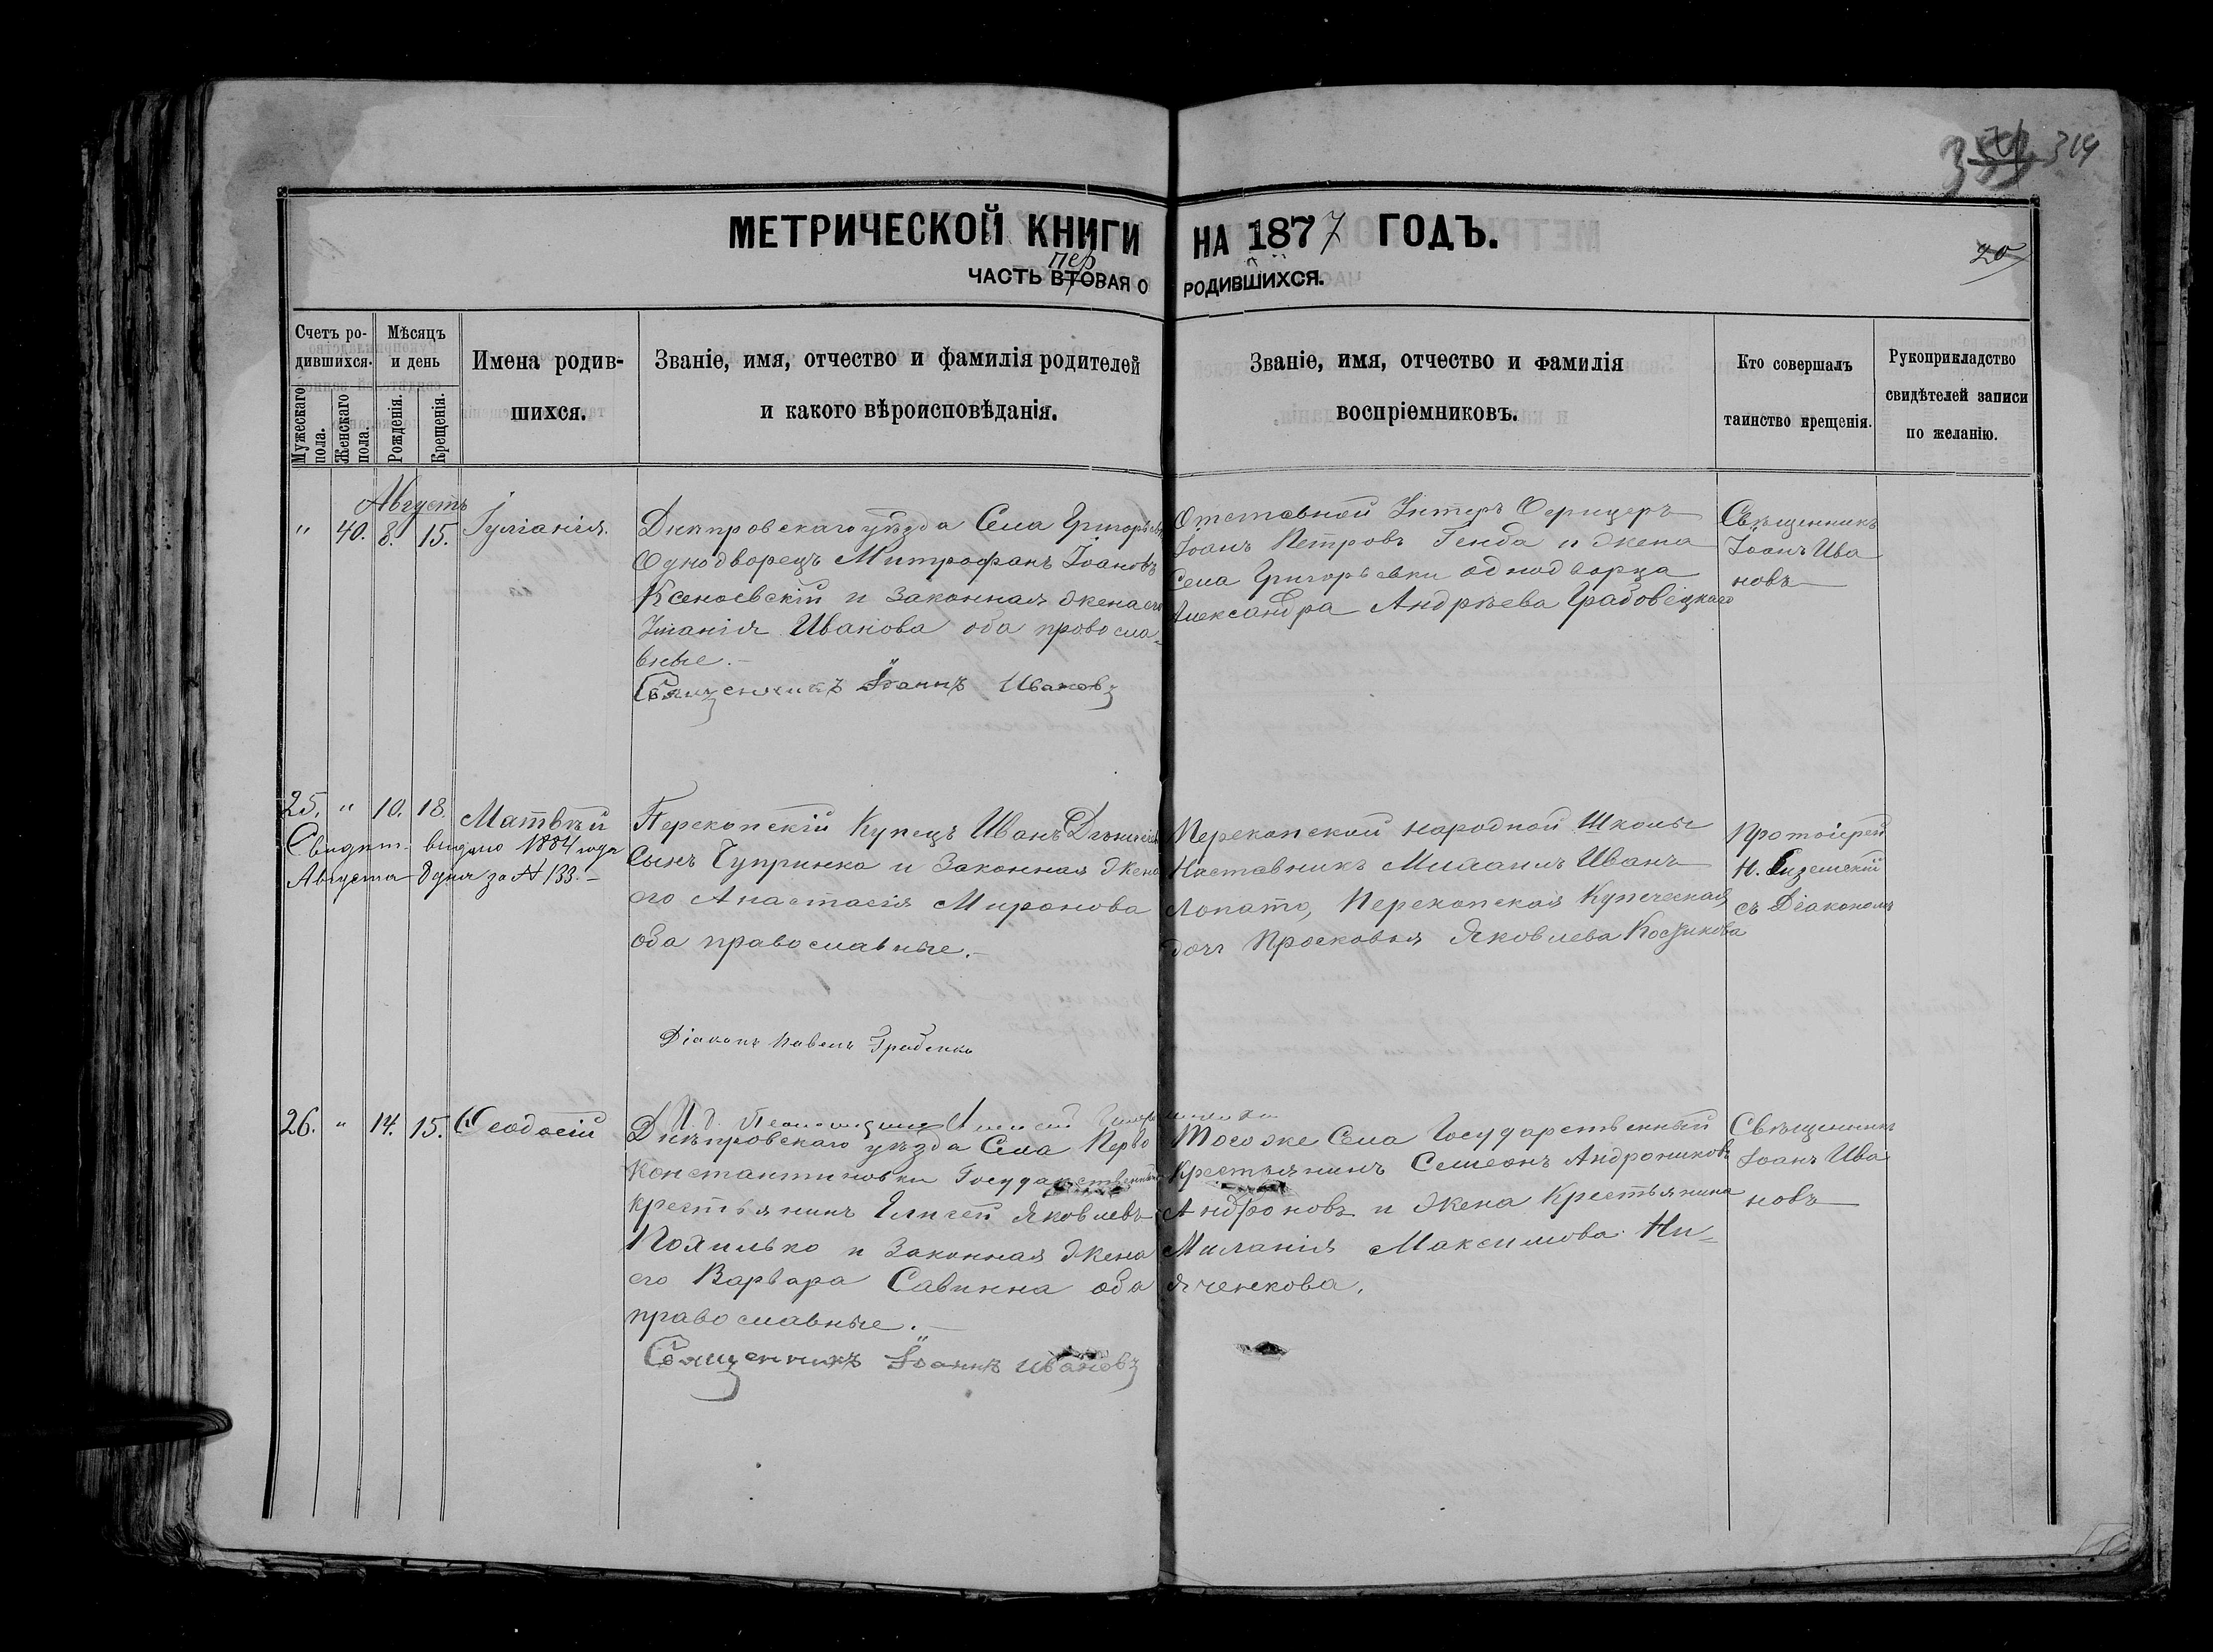 314
МЕТРИЧЕСКОЙ КНИГИ НА 1877 ГОДЪ.
20
пер
ЧАСТЬ ВТОРАЯ О РОДИВШИХСЯ.
Счетъ ро-
дившихся.
Мужескаго
пола.
Женскаго
пола.
Мѣсяцъ
и день
Рожденія.
Крещенія.
Имена родив-
шихся.
Званіе, имя, отчество и фамилія родителей
и какого вѣроисповѣданія.
Званіе, имя, отчество и фамилія
воспріемниковъ.
Кто совершалъ
таинство крещенія.
Рукоприкладство
свидѣтелей записи
по желанію.
Августъ
" 40. 8. 15. Іуліанія.
Днѣпровскаго уѣзда Села Григорьевки
Однодворецъ Митрофанъ Іоановъ
Ксеноевскій и Законная жена его
Ивакова оба провосла-
вные.-
Священникъ Іоаннъ Ивановъ
Отставной Унтеръ Офрицеръ
Іоанъ Петровъ Генда и жена
Села Григорьевки однодворца
Александра Андрѣева Грабовецкаго
Священникъ
Іоанъ Ива
новъ
25. " 10. 18. Матвѣй
Свидѣт. выдано 1884 года
Августа 8 дня за № 133.-
Перекопскій Купецъ Иванъ
Сынъ Чупринка и Законная Жена
его Анастасія Миронова
оба православные.-
Діаконъ Павелъ
Перекопской народной Школы
Наставникъ Михаилъ Иванъ
Лопато, Перекопская Купеческая
дочь Просковья Яковлева
Протоіерей
Н.
съ Діакономъ
26. " 14. 15. Ѳеодосій
И. д.
Днѣпровскаго уѣзда Села Перво
Константиновки Государственный
крестьянинъ Елисей Яковлевъ
Похилько и Законная Жена
его Варвара Савинна оба
православные.-
Священникъ Іоаннъ Ивановъ
Того же Села Государственный
Крестьянинъ Семеонъ Андрониковъ
Андроновъ и Жена Крестьянина
Миланія Максимова Ни-
яченкова.
Священникъ
Іоанъ Ива
новъ